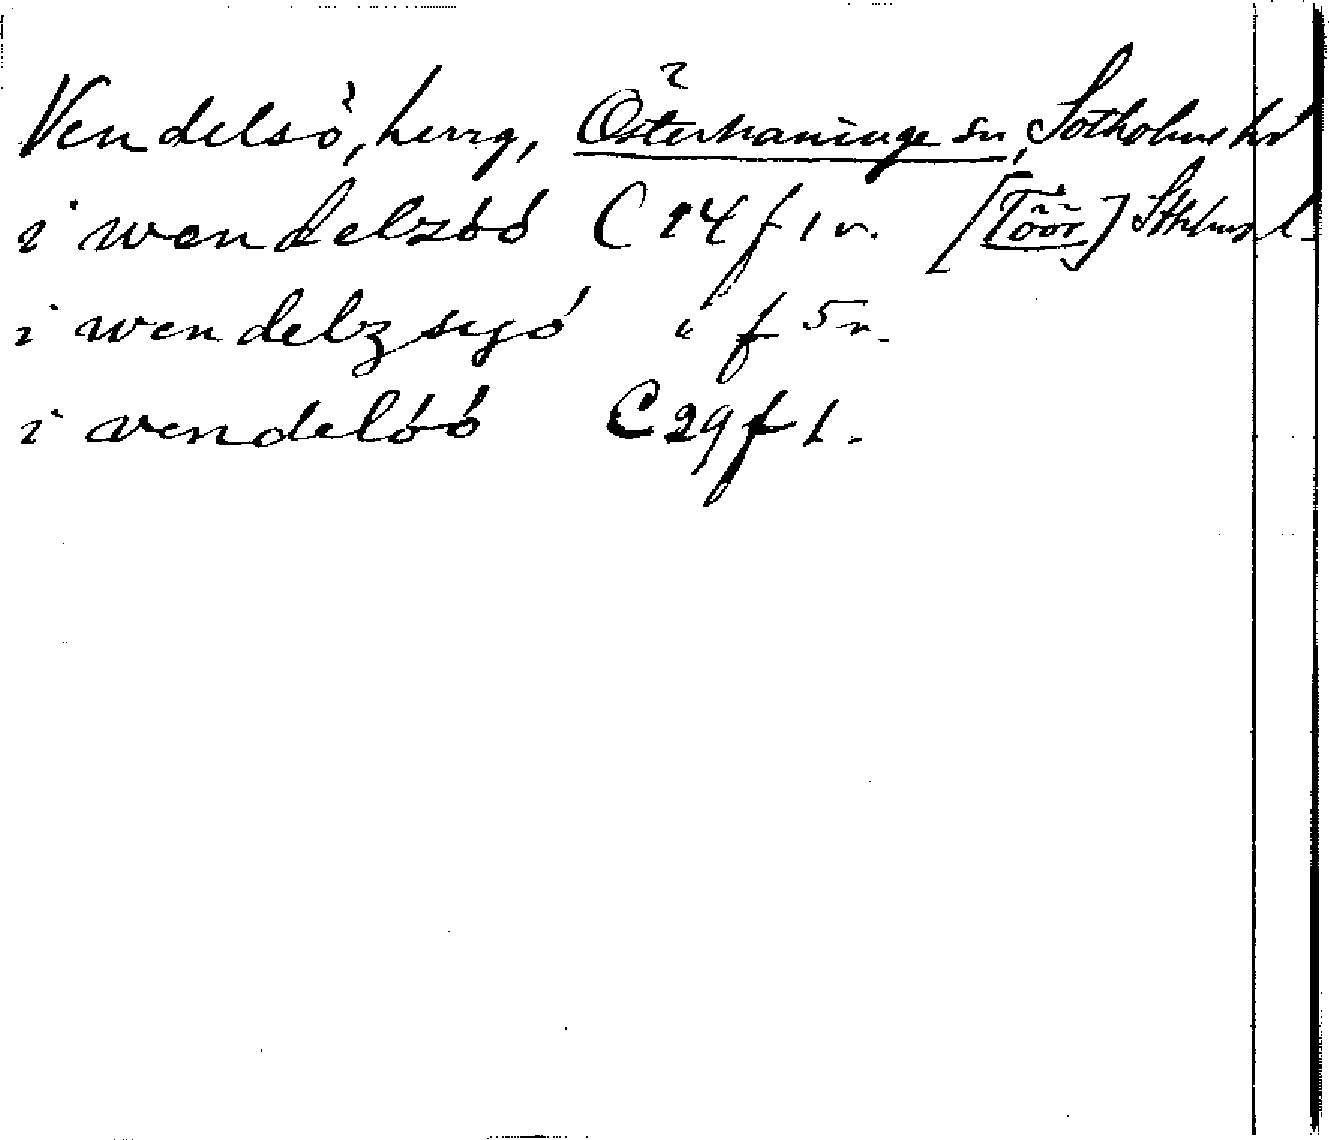 Vendelsö, herrg, Österhaninge sn, Sotholms hd
i wendelzóó C 14 f 1 v. [Töör] Sthlms l.
i wendelz sryó " f 5 v.
i vendelóó C 29 f 1.